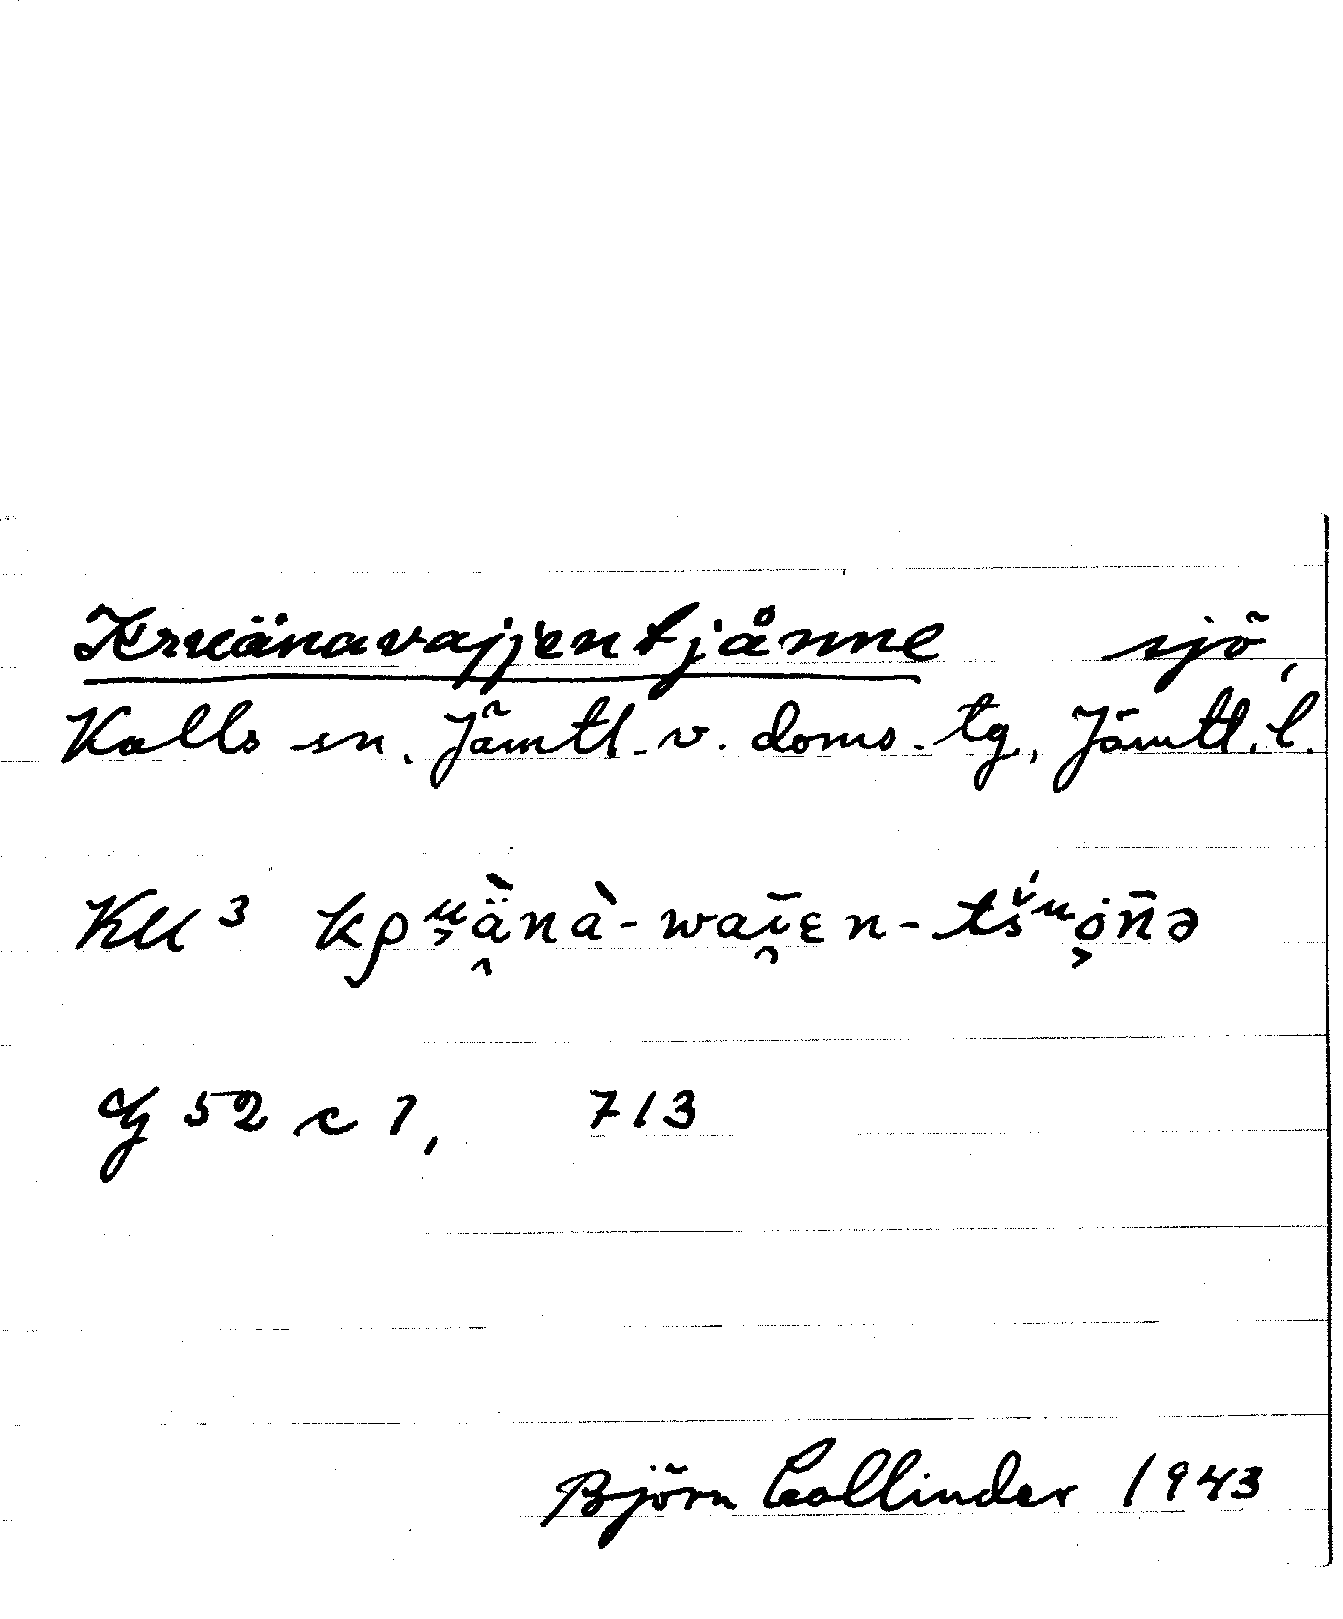 Kruänavajjentjånne sjö,
Kalls sn. Jämtl. v. doms. tg, Jämtl. l.
KM³ kρᵘ̯ä̀nà-waī̯εn-tš́ᵘȯn̄ə
G 52 c 1, 713
Björn Collinder 1943